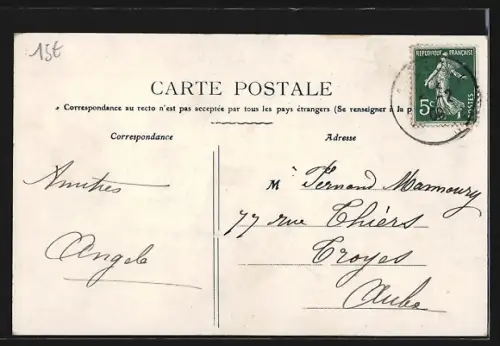 15t
REPUBLIQUE FRANÇAISE
5c
POSTES
CARTE POSTALE
Correspondance au recto n'est pas acceptée par tous les pays étrangers (Se renseigner à la p
Correspondance
Adresse
Amitiés
Angele
M Fernand Mammoury
77 rue Thiers
Troyes
Aube